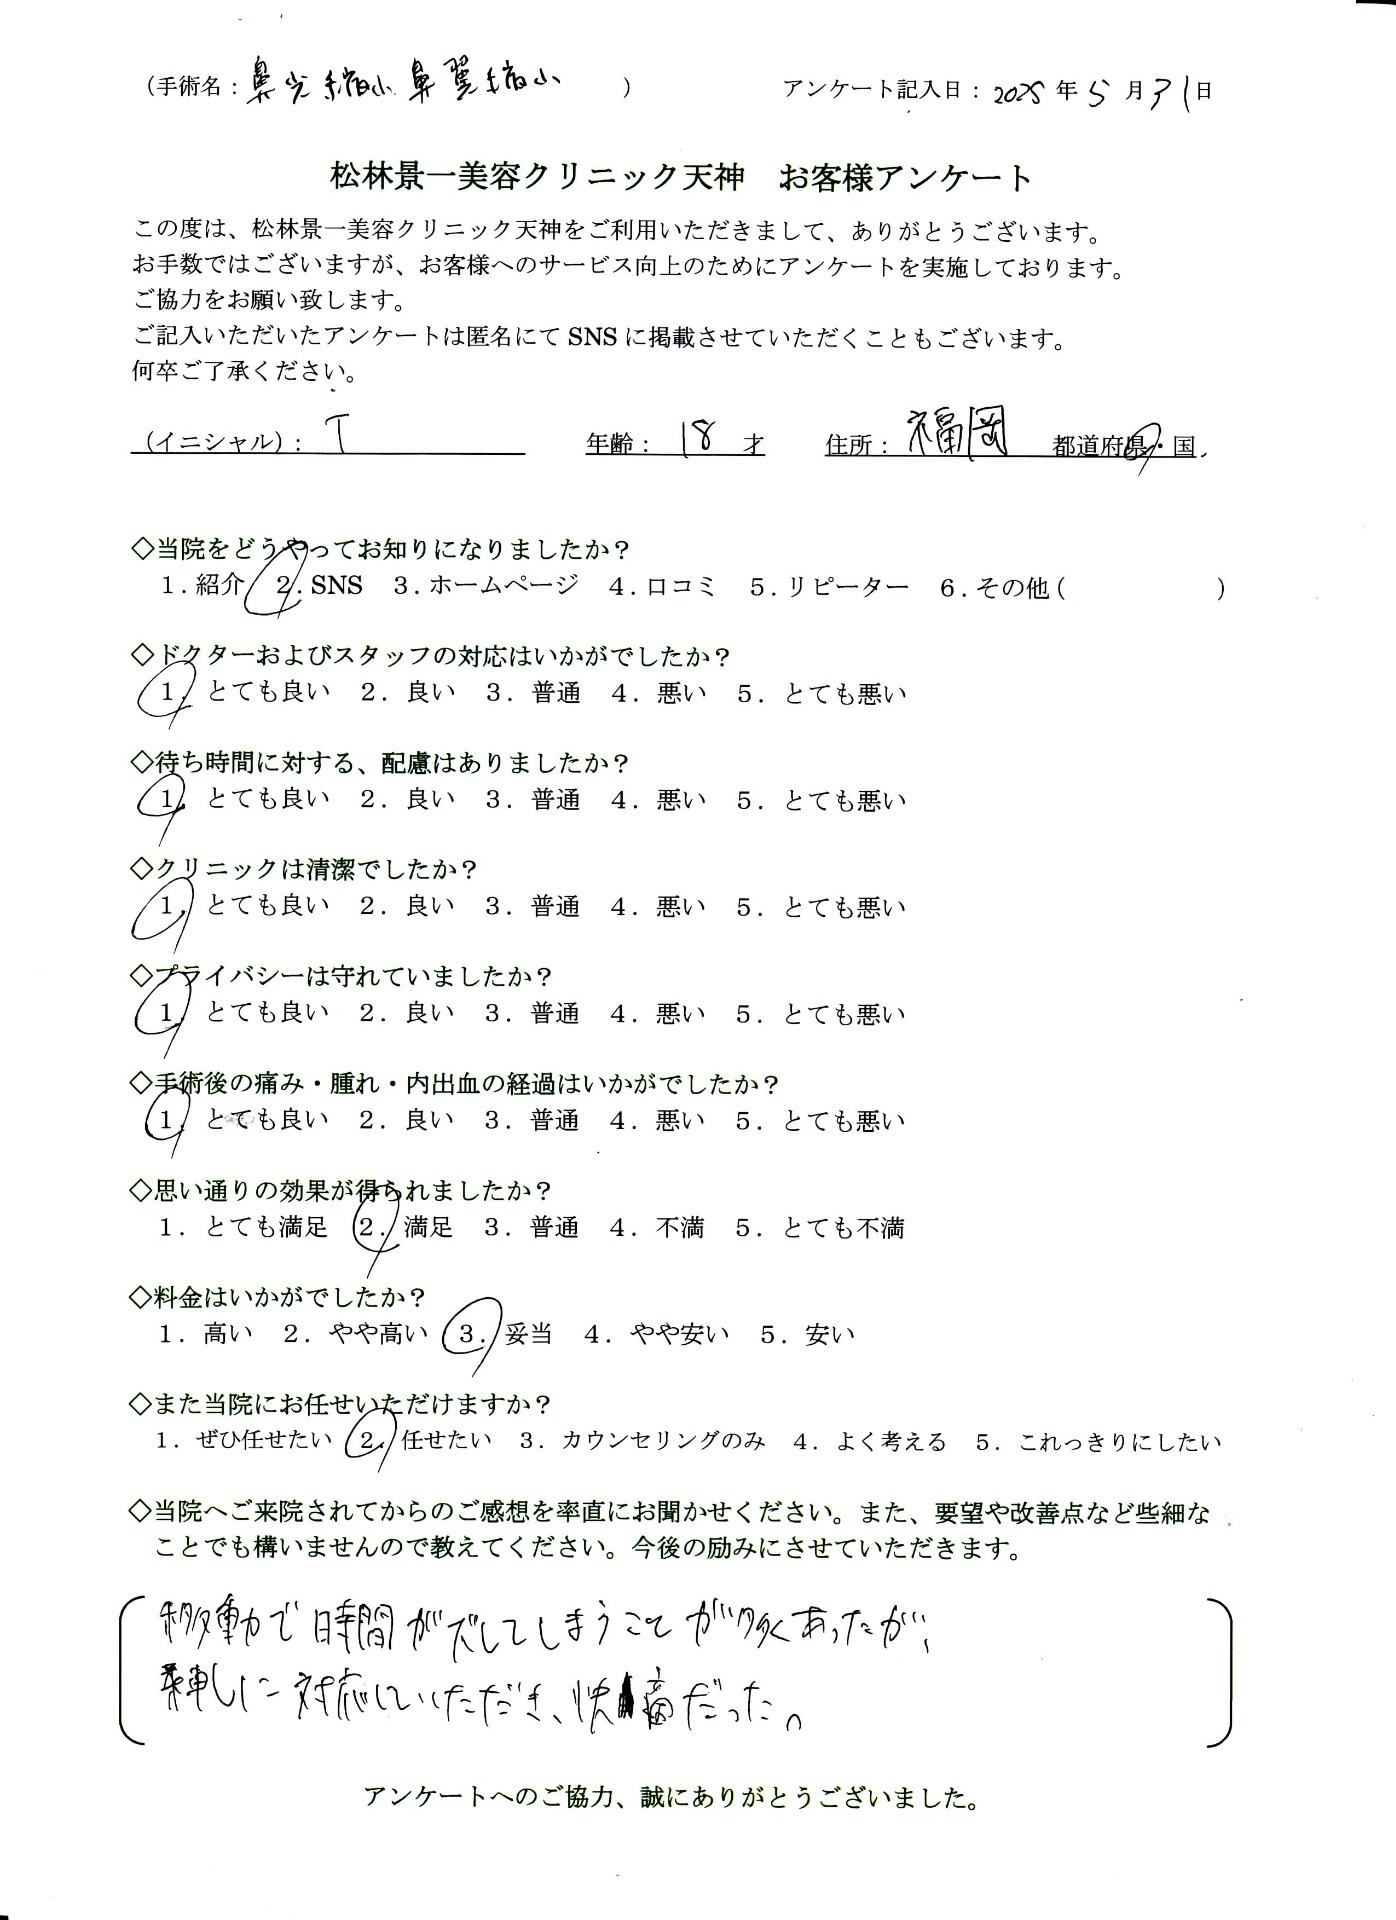 （手術名：鼻尖縮小 鼻翼縮小　　）　アンケート記入日：2025年5月31日
松林景一美容クリニック天神　お客様アンケート
この度は、松林景一美容クリニック天神をご利用いただきまして、ありがとうございます。
お手数ではございますが、お客様へのサービス向上のためにアンケートを実施しております。
ご協力をお願い致します。
ご記入いただいたアンケートは匿名にて SNS に掲載させていただくこともございます。
何卒ご了承ください。
（イニシャル）：T　年齢：18 才　住所：福岡 都道府県・国
◇当院をどうやってお知りになりましたか？
1.紹介　2.SNS　3.ホームページ　4.口コミ　5.リピーター　6.その他（　　）
◇ドクターおよびスタッフの対応はいかがでしたか？
1．とても良い　2．良い　3．普通　4．悪い　5．とても悪い
◇待ち時間に対する、配慮はありましたか？
1．とても良い　2．良い　3．普通　4．悪い　5．とても悪い
◇クリニックは清潔でしたか？
1．とても良い　2．良い　3．普通　4．悪い　5．とても悪い
◇プライバシーは守れていましたか？
1．とても良い　2．良い　3．普通　4．悪い　5．とても悪い
◇手術後の痛み・腫れ・内出血の経過はいかがでしたか？
1．とても良い　2．良い　3．普通　4．悪い　5．とても悪い
◇思い通りの効果が得られましたか？
1．とても満足　2．満足　3．普通　4．不満　5．とても不満
◇料金はいかがでしたか？
1．高い　2．やや高い　3．妥当　4．やや安い　5．安い
◇また当院にお任せいただけますか？
1．ぜひ任せたい　2．任せたい　3．カウンセリングのみ　4．よく考える　5．これっきりにしたい
◇当院へご来院されてからのご感想を率直にお聞かせください。また、要望や改善点など些細な
ことでも構いませんので教えてください。今後の励みにさせていただきます。
移動で時間がズレてしまうことが多くあったが、
に対応していただき、だった。
アンケートへのご協力、誠にありがとうございました。